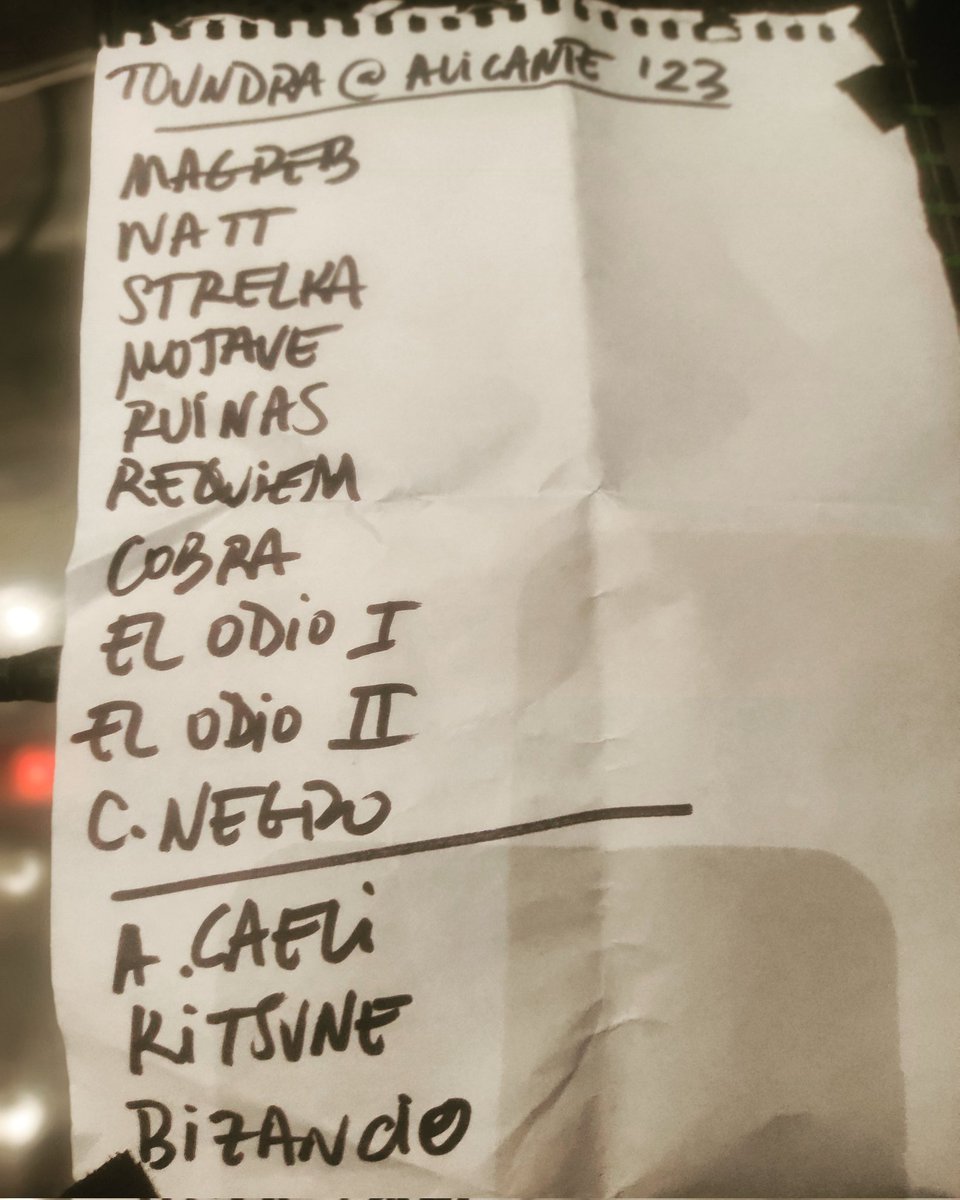 TOUNDRA @ ALiCANTE '23
MAGREB
WATT
STRELKA
MOJAVE
RUINAS
REQUiEM
COBRA
EL ODiO I
EL ODiO II
C. NEGRO
A. CAELi
KiTSUNE
BiZANciO